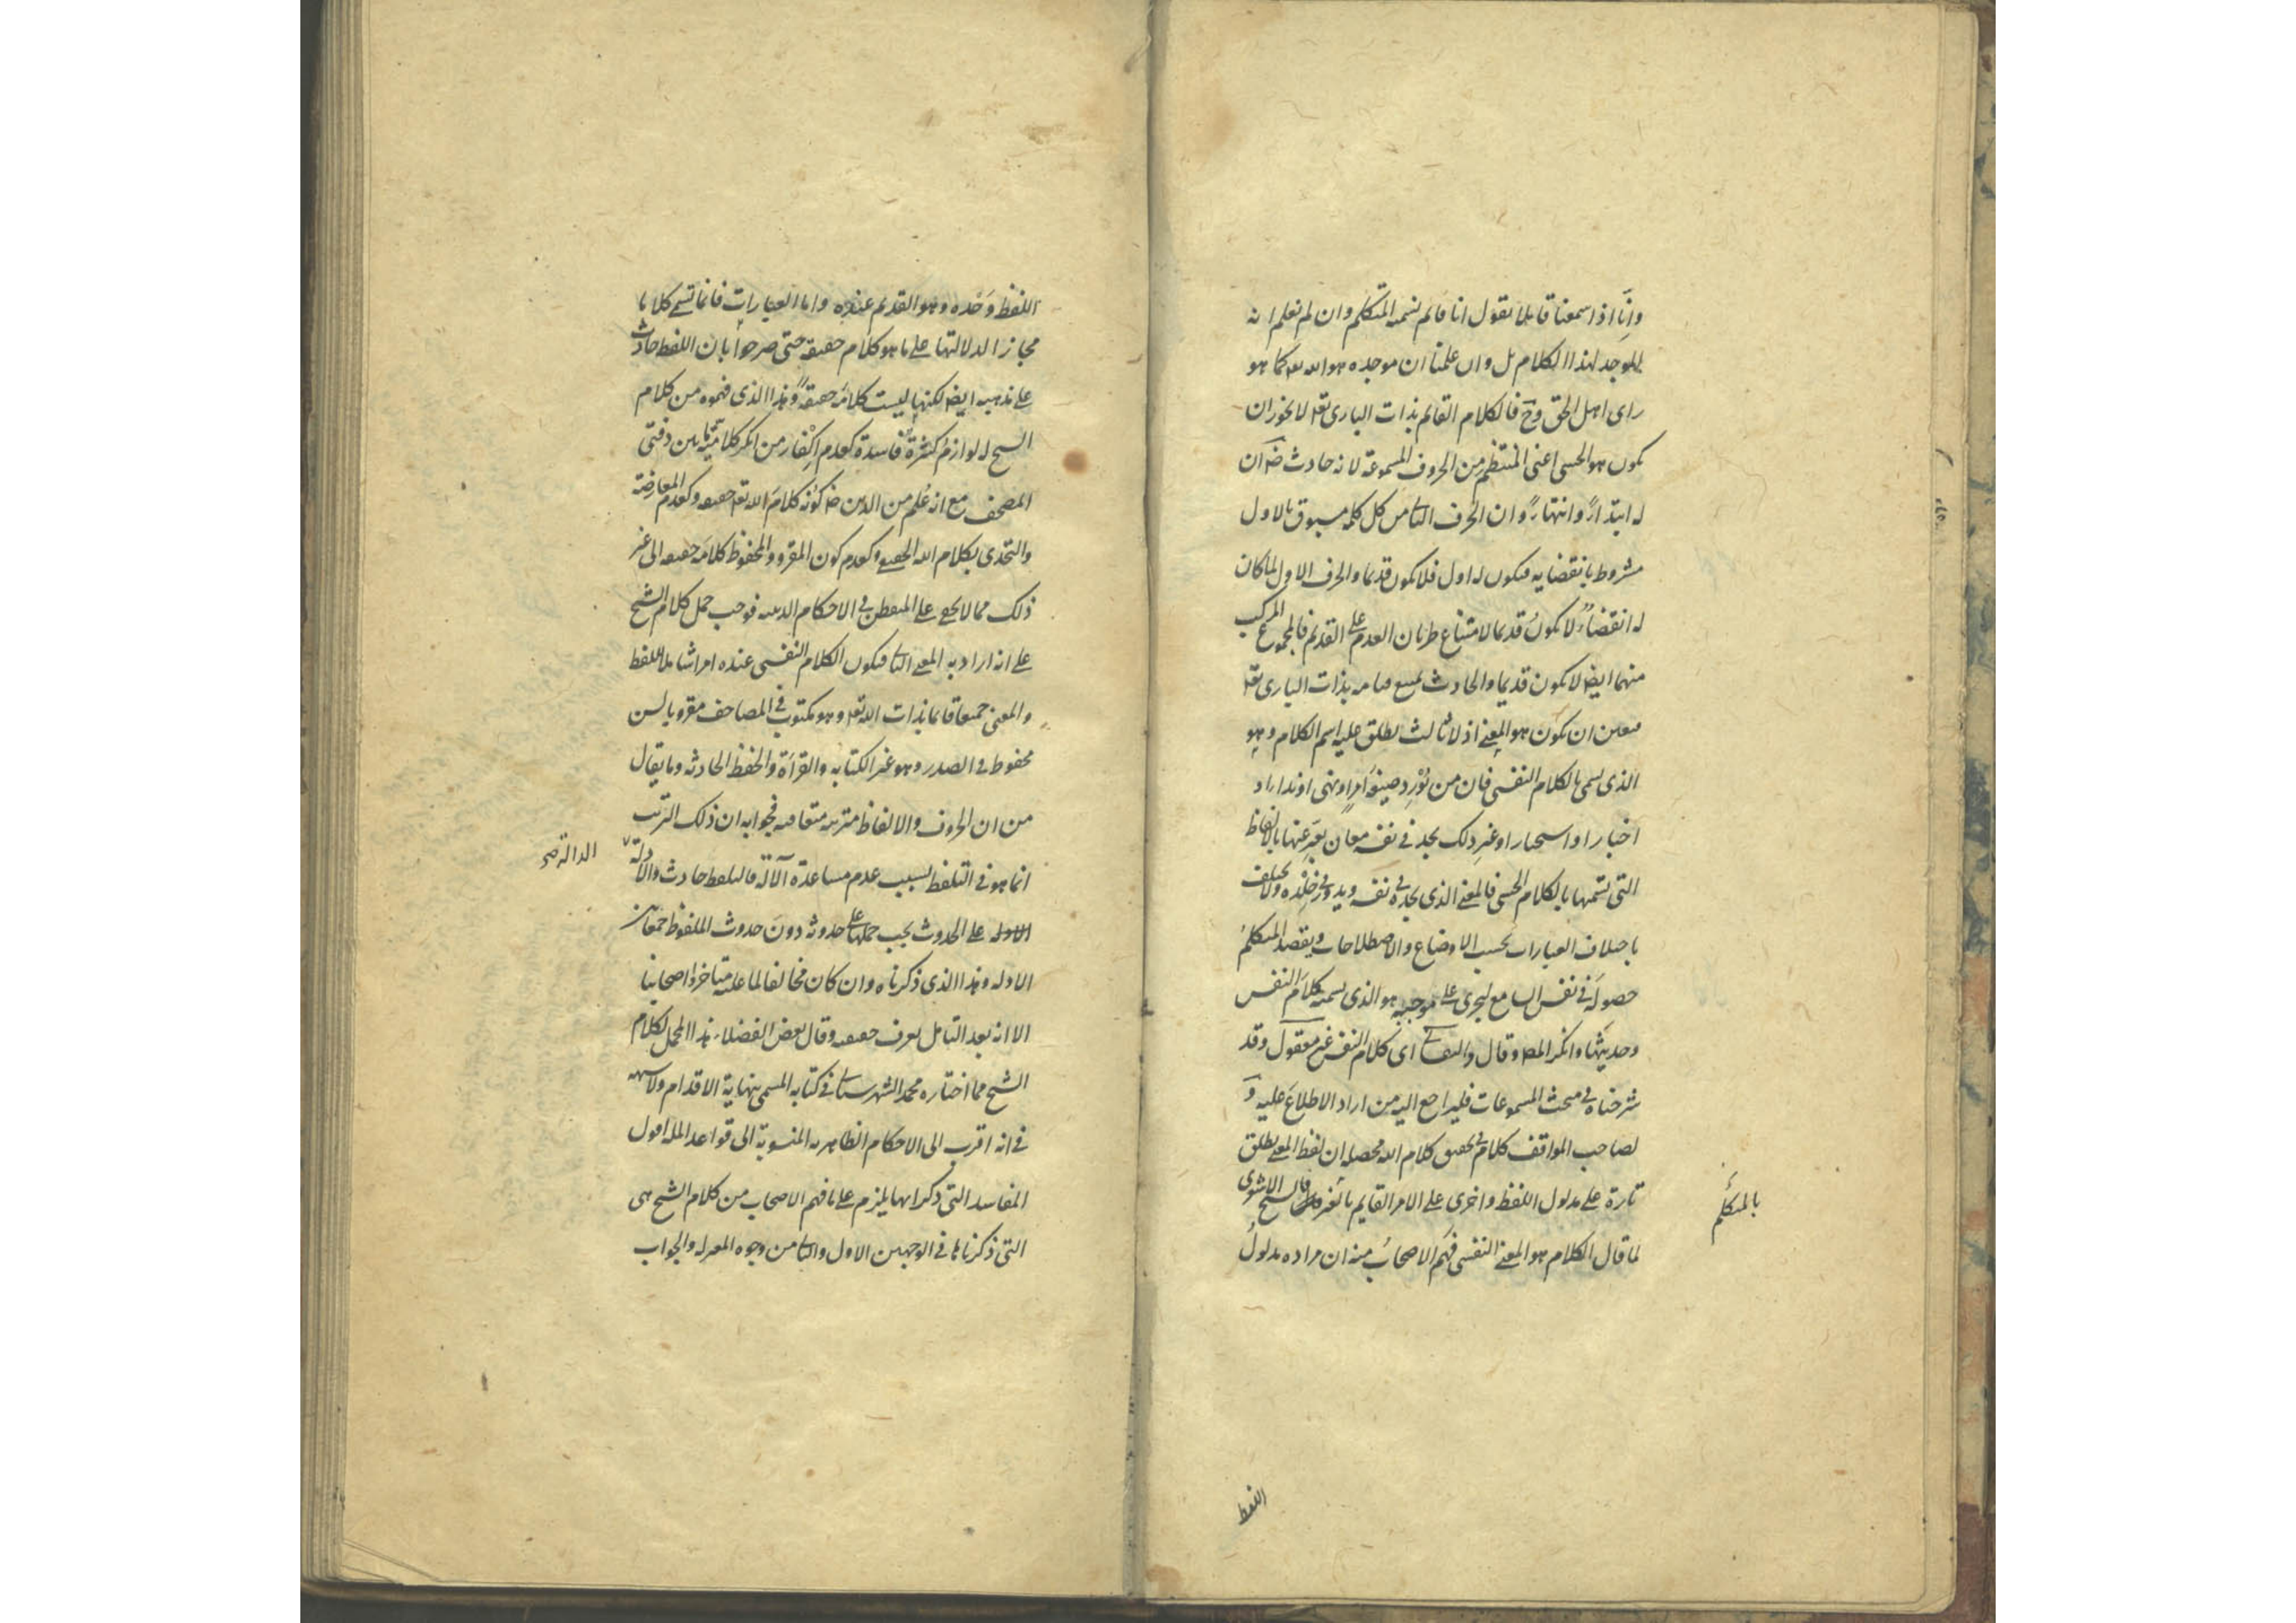 وانّا اذا سمعنا قايلا يقول انا قايم نسميه المتكلم وان لم نعلم انه
الموجد لهذا الكلام بل وان علمنا ان موجده هو الله تعه كما هو
راى اهل الحق وح فالكلام القايم بذات البارى تعه لا يجوز ان
يكون هو الحسى اعنى المنتظم من الحروف المسموعة لانه حادث ضه ان
له ابتداءً وانتهاءً وان الحرف الثانى من كل كلمة مسبوق بالاول
مشروط بانقضايه فيكون له اول فلا يكون قديما والحرف الاول لما كان
له انقضاءٌ لا يكون قديما لامتناع طريان العدم على القديم فالمجموع المركب
منهما ايضا لا يكون قديما والحادث يمتنع قيامه بذات البارى تعه
فتعين ان يكون هو المعنى اذ لا ثالث يطلق عليه اسم الكلام وهو
الذى يسمى بالكلام النفسى فان من يُوْرِد صيغةَ امرٍ او نهى او نداء او
اخبار او استخبار او غير ذلك يجد فى نفسه معان يعبّر عنها بالالفاظ
التى نسميها بالكلام الحسى فالمعنى الذى يجده فى نفسه ويدور فى خَلَده ولا يختلف
باختلاف العبارات بحسب الاوضاع والاصطلاحات ويقصد المتكلمُ
حصولَه فى نفس السامع ليجرى على موجبه هو الذى نسميه كلامَ النفس
وحديثَها وانكر المصه وقال والنفسانى اى كلام النفس غير معقول وقد
شرحناه فى مبحث المسموعات فليراجع اليه من اراد الاطلاع عليه و
لصاحب المواقف كلام فى تحقيق كلام الله محصله ان لفظ المعنى يطلق
تارة على مدلول اللفظ واخرى على الامر القايم بالغير فالشيخ الاشعرى
لما قال الكلام هو المعنى النفسى فهم الاصحابُ منه ان مراده مدلولُ
بالمتكلم
اللفظ
اللفظ وَحْده وهو القديم عنده واما العبارات فانما تسمى كلاما
مجازا لدلالتها على ما هو كلام حقيقة حتى صرحوا بان اللفظ حادث
على مذهبه ايضا لكنها ليست كلامَه حقيقةً وهذا الذى فهموه من كلام
الشيخ له لوازمُ كثيرةٌ فاسدة كعدم اِكفار من انكر كلاميّة ما بين دفتى
المصحف مع انه عُلم من الدين ضه كونُه كلامَ الله تعه حقيقة وكعدم المعارضة
والتحدى بكلام الله الحقيقى وكعدم كون المقروِ والمحفوظ كلامَه حقيقه الى غير
ذلك مما لا يخفى على المتفطن فى الاحكام الدينيه فوجب حمل كلام الشيخ
على انه اراد به المعنى الثانى فيكون الكلام النفسى عنده امرا شاملا للفظ
والمعنى جميعا قايما بذات الله تعه وهو مكتوب فى المصاحف مقرو بالسن
محفوظ فى الصدر وهو غير الكتابه والقراءة والحفظ الحادثه وما يقال
من ان الحروف والالفاظ مترتبه متعاقبه فجوابه ان ذلك الترتب
انما هو فى التلفظ بسبب عدم مساعدة الآلة فالتلفظ حادث والادلة
الداله صح
الادله على الحدوث يجب حملها على حدوثه دونَ حدوث الملفوظ جمعا بين
الادله وهذا الذى ذكرناه وان كان مخالفا لما عليه متاخروا اصحابنا
الا انه بعد التامل يعرف حقيقته وقال بعض الفضلاء هذا المحمل لكلام
الشيخ مما اختاره محمد الشهرستانى فى كتابه المسمى بنهاية الاقدام ولا شبهه
فى انه اقرب الى الاحكام الظاهريه المنسوبة الى قواعد المله اقول
المفاسد التى ذكر انها يلزم على ما فهم الاصحاب من كلام الشيخ هى
التى ذكرناها فى الوجهين الاول والثانى من وجوه المعتزله والجواب